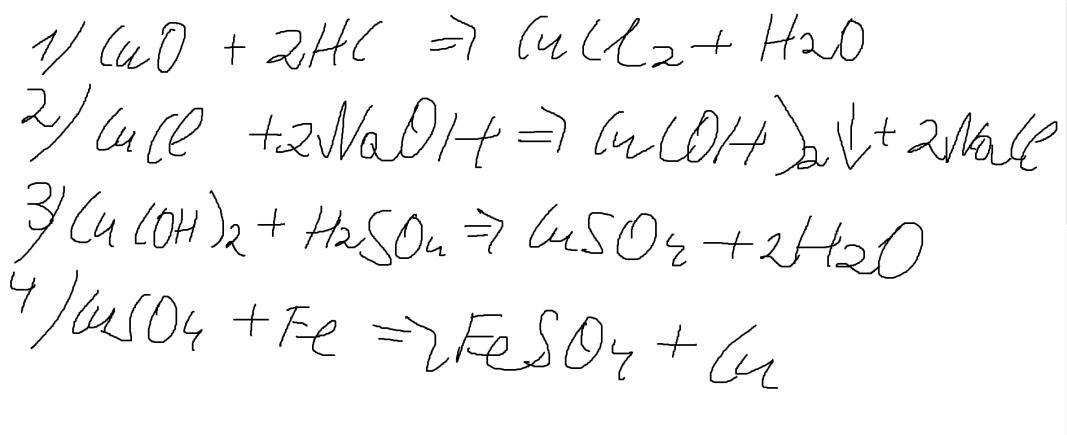 1) CuO + 2HC => CuCl2 + H2O
2) CuCl + 2NaOH => Cu(OH)2↓ + 2NaCl
3) Cu(OH)2 + H2SO4 => CuSO4 + 2H2O
4) CuSO4 + Fe => FeSO4 + Cu